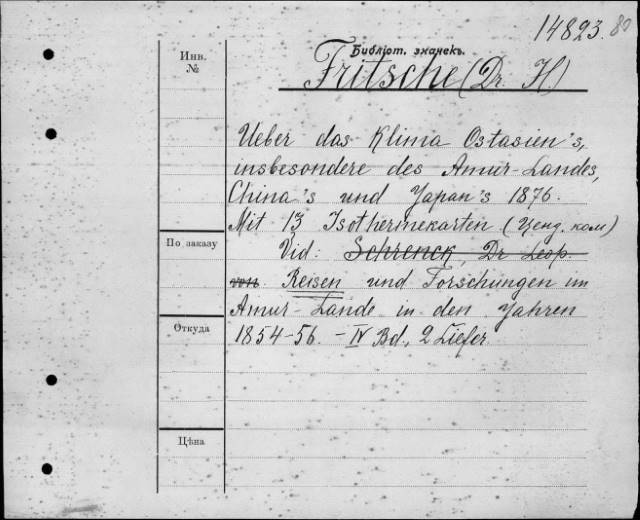 14823. 80
Инв.
№
Библіот. значекъ.
Fritsche (Dr. H)
Ueber das Klima Ostasien's,
insbesondere des Amur-Landes,
China's und Yapan's 1876.
Mit 13 Isothermekarten (Ценд. ком)
По заказу
Vid: Schrenck, Dr Leop.
von. Reisen und Forschungen im
Amur-Lande in den Yahren
Откуда
1854-56. - IV Bd., 2 Liefer.
Цѣна